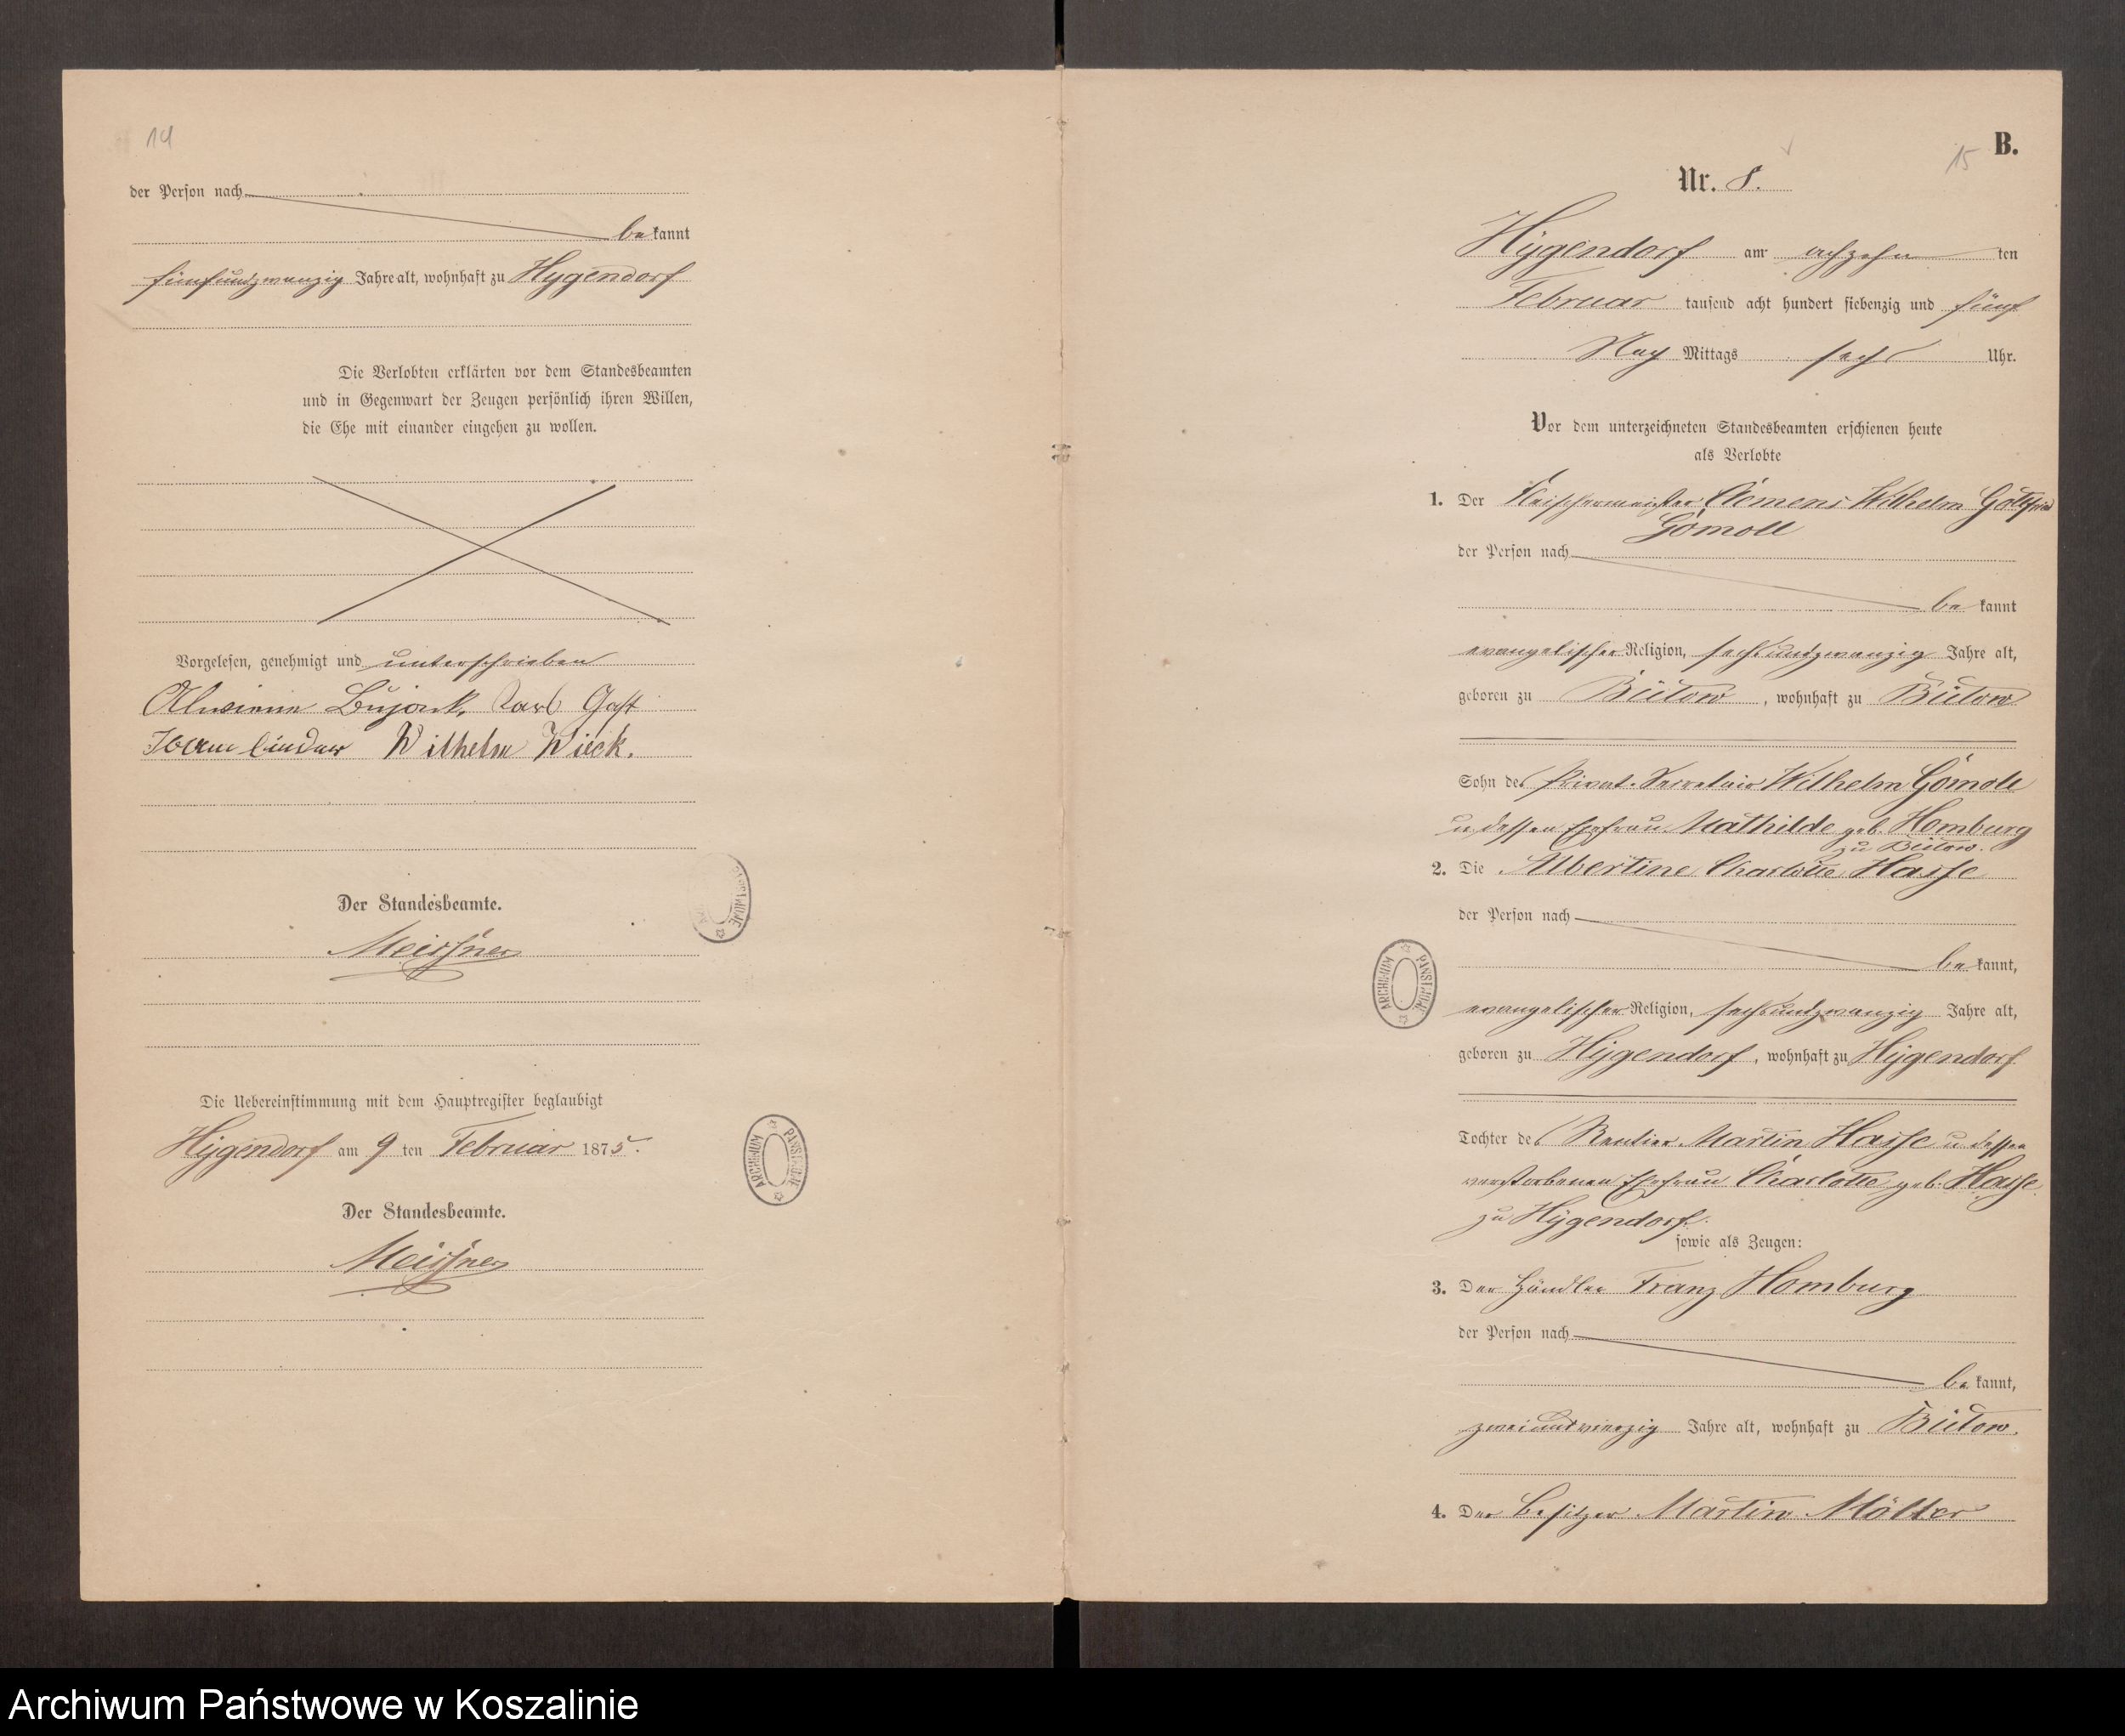 14
der Person nach
bekannt
fünfundzwanzig Jahre alt, wohnhaft zu Hygendorf
Die Verlobten erklärten vor dem Standesbeamten
und in Gegenwart der Zeugen persönlich ihren Willen,
die Ehe mit einander eingehen zu wollen.
Vorgelesen, genehmigt und unterschrieben
Karl Gast
Wilhelm Wieck.
Der Standesbeamte.
Meissner
Die Uebereinstimmung mit dem Hauptregister beglaubigt
Hygendorf am 9 ten Februar 1875.
ARCHIWUM PAŃSTWOWE
Der Standesbeamte.
Meissner
15
B.
Nr. 8.
Hygendorf am achzehn ten
Februar tausend acht hundert siebenzig und fünf
Nach Mittags sechs Uhr.
Vor dem unterzeichneten Standesbeamten erschienen heute
als Verlobte
1. Der Fleischermeister Clemens Wilhelm Gottfried
Gomoll
der Person nach
bekannt
evangelischer Religion, sechsundzwanzig Jahre alt,
geboren zu Bütow, wohnhaft zu Bütow
Sohn des Privat-Secretair Wilhelm Gomoll
u. dessen Ehefrau Mathilde geb. Homburg
zu Bütow.
2. Die Albertine Charlotte Hasse
der Person nach
bekannt,
ARCHIWUM PAŃSTWOWE
evangelischer Religion, sechsundzwanzig Jahre alt,
geboren zu Hygendorf, wohnhaft zu Hygendorf.
Tochter des Rentier Martin Hasse u. dessen
verstorbenen Ehefrau Charlotte geb. Hasse
zu Hygendorf.
sowie als Zeugen:
3. Der Händler Franz Homburg
der Person nach
bekannt,
zweiundvierzig Jahre alt, wohnhaft zu Bütow.
4. Der Besitzer Martin
Archiwum Państwowe w Koszalinie